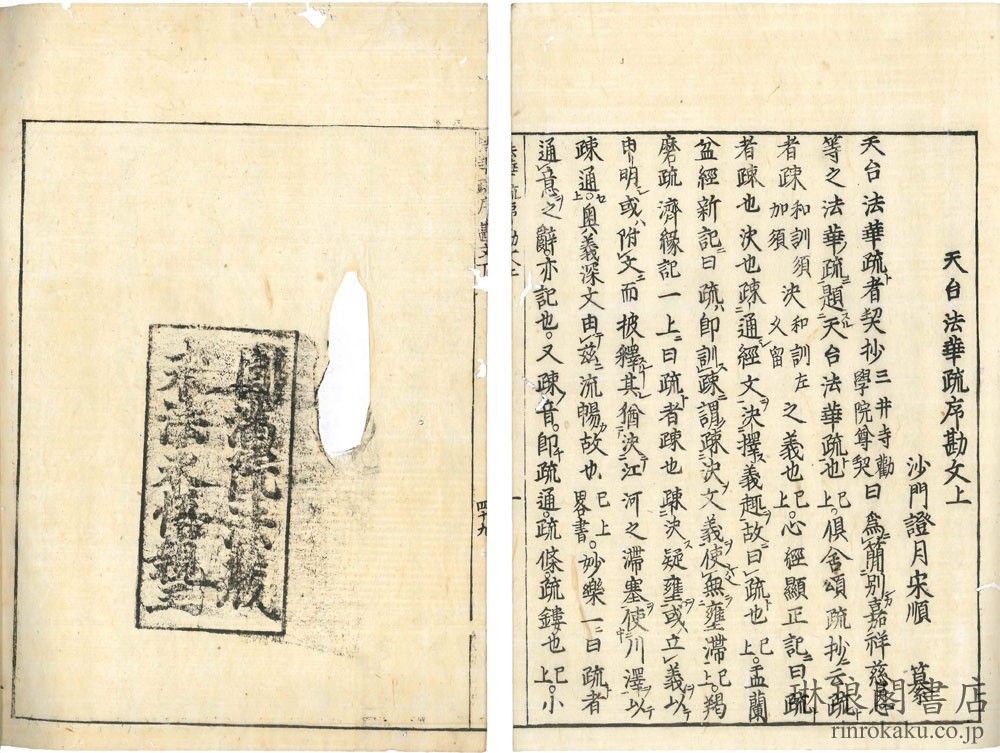 天台法華疏序勘文上
沙門證月宋順 纂
天台法華疏者契抄三井寺勸學院尊契曰為簡別嘉祥慈恩
等之法華疏題天台法華疏也已上倶舍頌疏抄云疏
者疎和訓須加須決和訓左之義也已上心經顯正記曰疏
者疎也決也疎通經文決擇義趣故曰疏也已上盂蘭
盆經新記曰疏即訓疎謂疎決文義使無壅滯已上羯
磨疏濟緣記一上曰疏者疎也疎決疑壅或立義以
明或附文而披釋其猶決江河之滯塞使川澤以
疎通奧義深文由茲流暢故也已上畧書妙樂一曰疏者
通意之辭亦記也又疎音即疏通疏條疏鏤也已上小
四十九
圓滿院藏版
琳琅閣書店
rinrokaku.co.jp